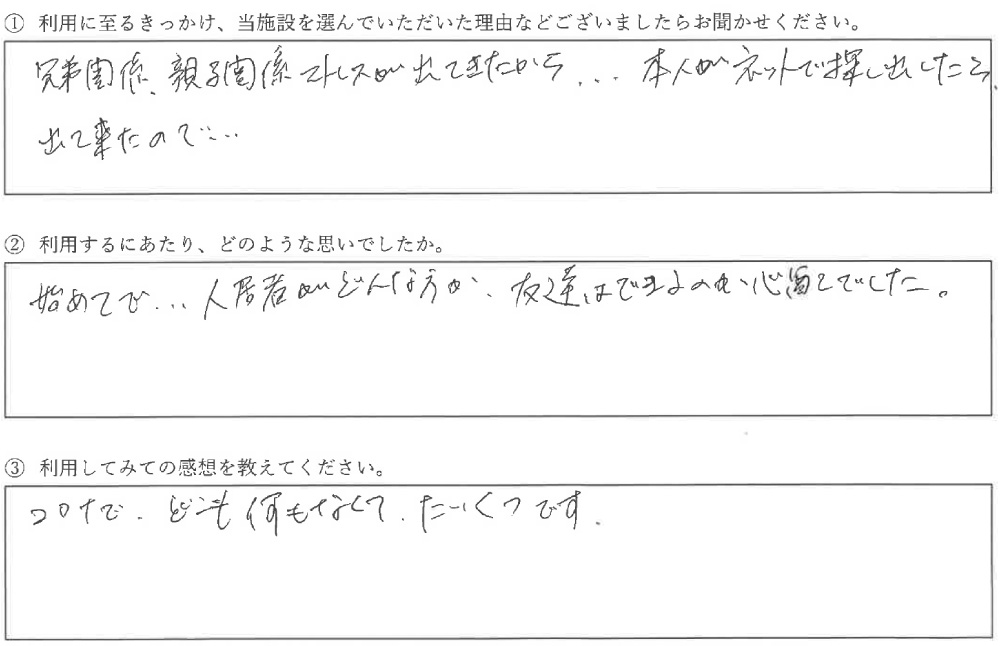 ① 利用に至るきっかけ、当施設を選んでいただいた理由などございましたらお聞かせください。
兄弟関係、親子関係ストレスが出てきたから... 本人がネットで探し出したら、
出て来たので...
② 利用するにあたり、どのような思いでしたか。
始めてで... 入居者がどんな方か、友達はできるのか心配でした。
③ 利用してみての感想を教えてください。
コロナで、どこも何もなくて、たいくつです。